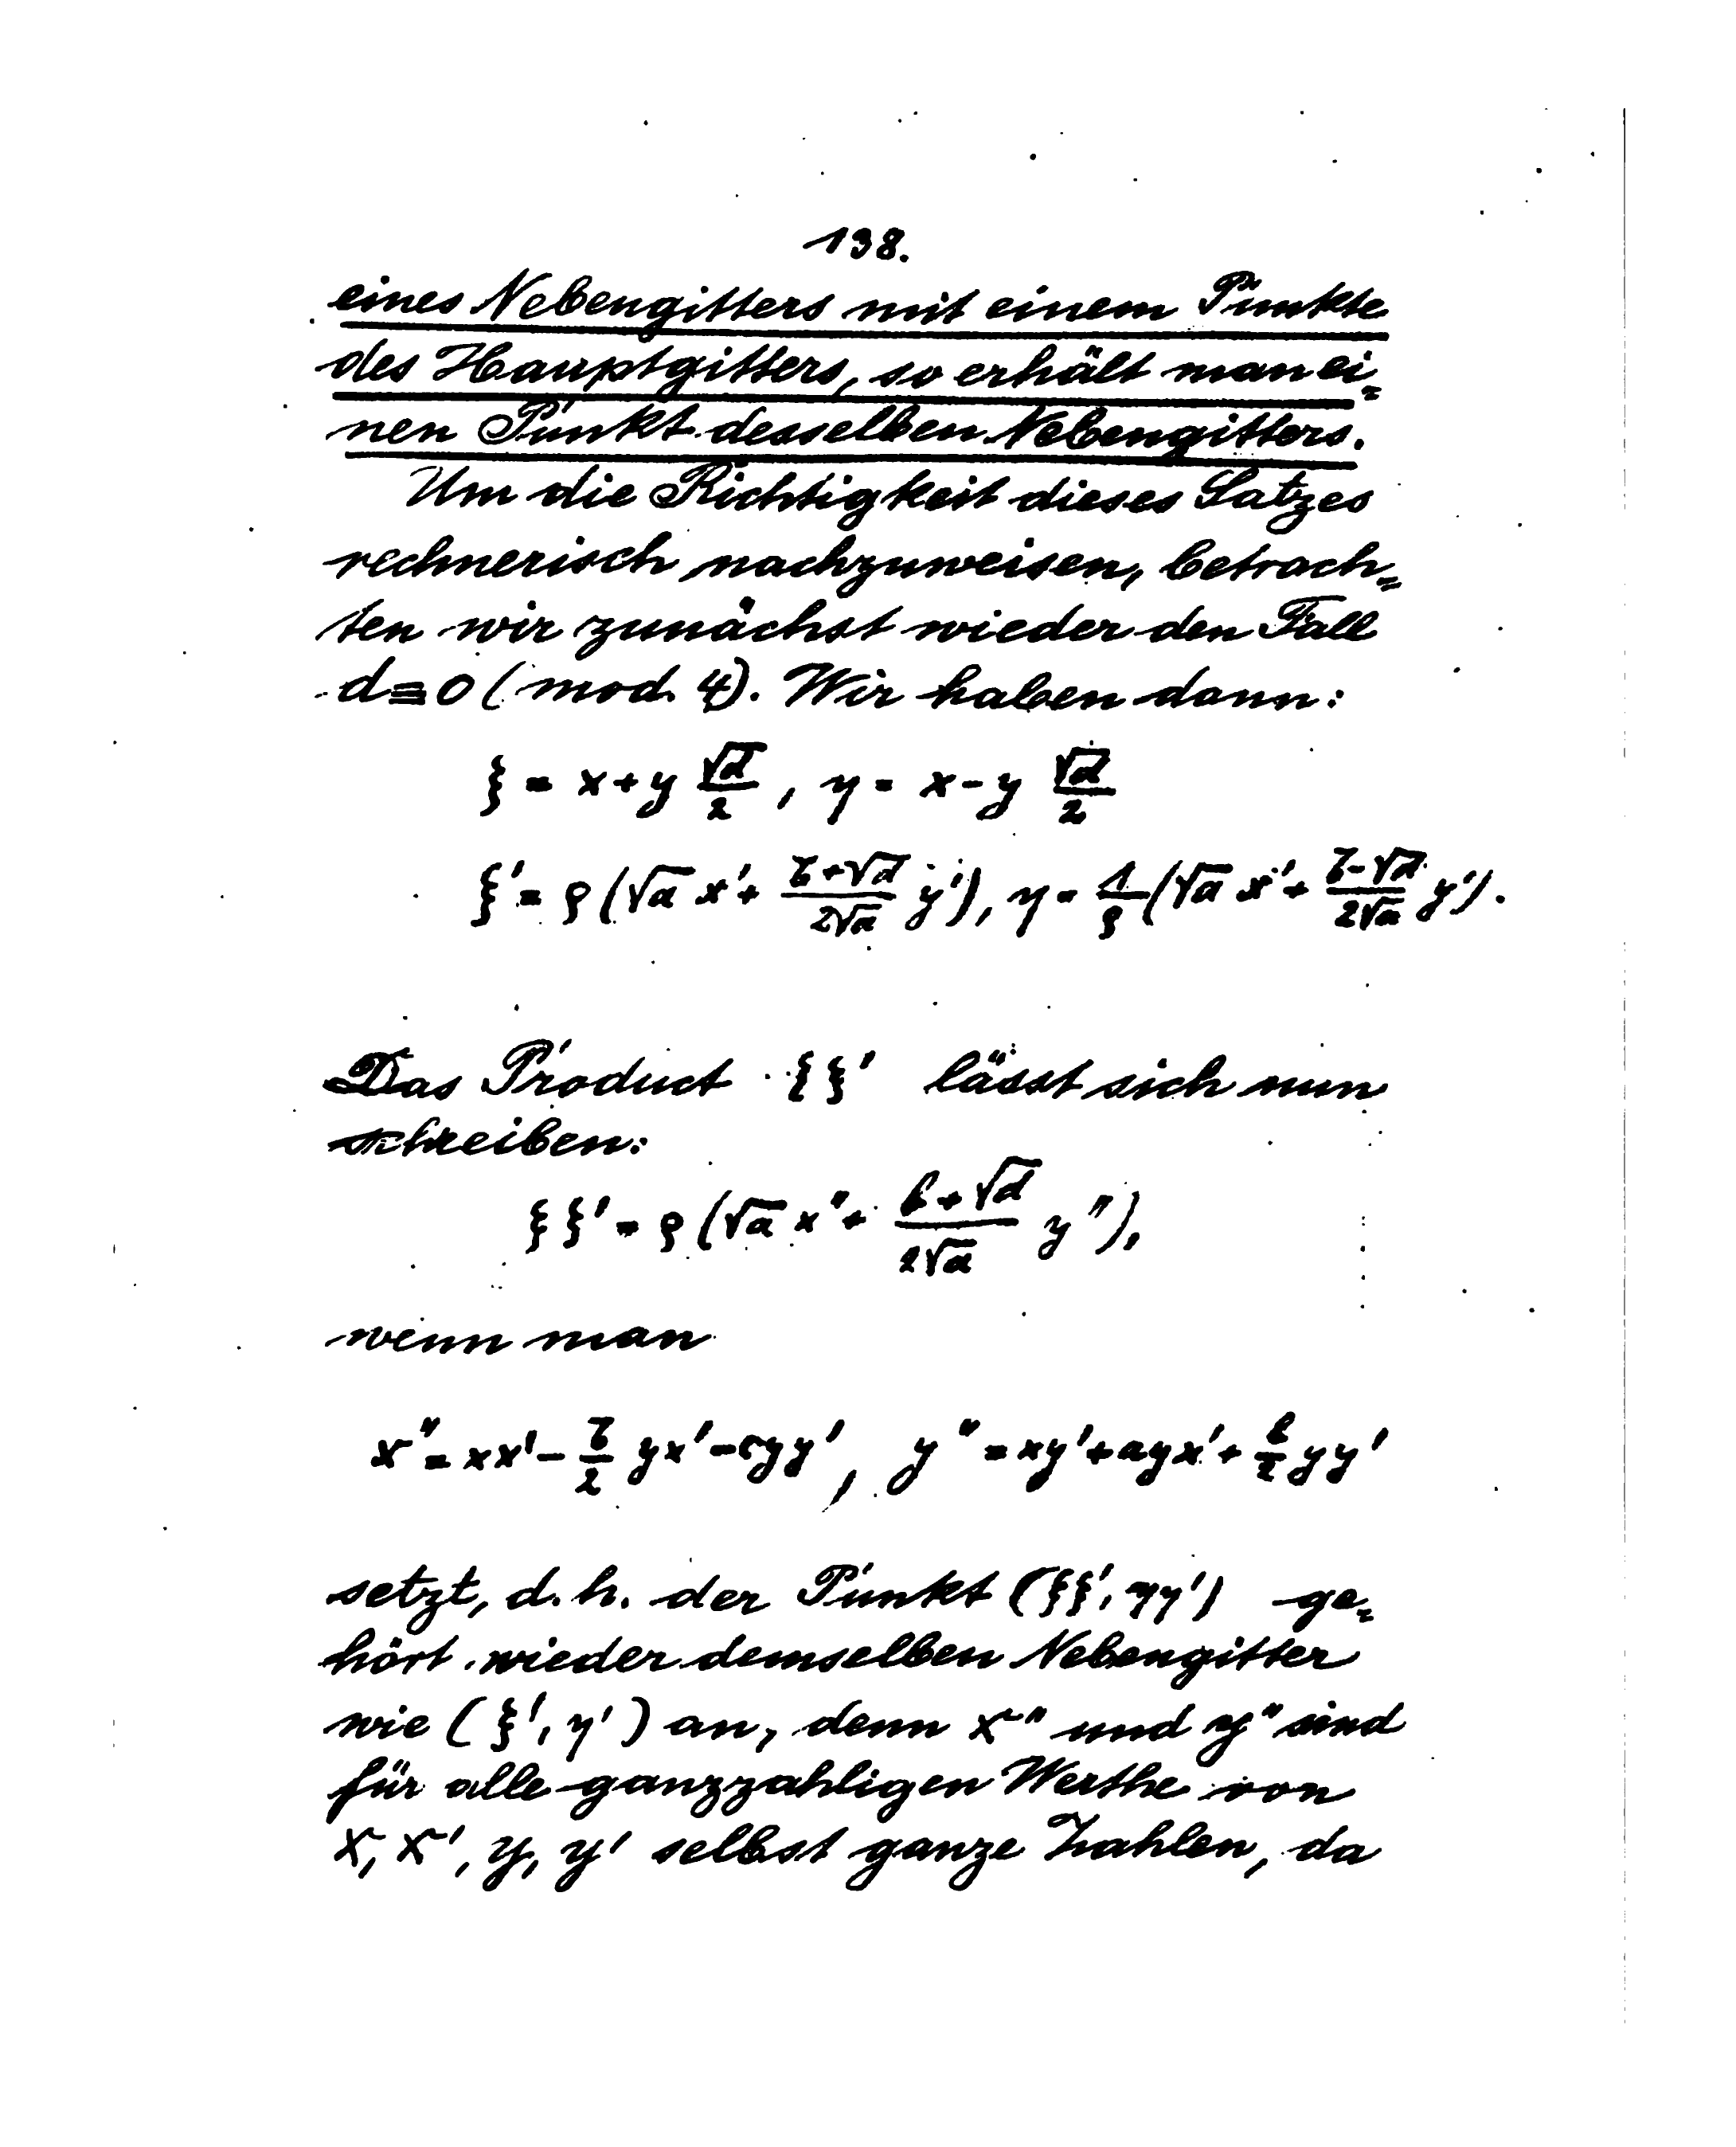 138.
eines Nebengitters mit einem Punkte
des Hauptgitters, so erhält man ei=
nen Punkt desselben Nebengitters.
Um die Richtigkeit dieses Satzes
rechnerisch nachzuweisen, betrach=
ten wir zunächst wieder den Fall
d≡0 (mod. 4). Wir haben dann:
ξ = x+y √d/2, η = x-y √d/2
ξ' = ρ(√a x' + (b+√d)/(2√a) y'), η = 1/ρ (√a x' + (b-√d)/(2√a) y').
Das Product ξξ' lässt sich nun
schreiben:
ξξ' = ρ(√a x" + (b+√d)/(2√a) y"),
wenn man
x" = xx' - b/2 yx' - cyy', y" = xy' + ayx' + b/2 yy'
setzt, d. h. der Punkt (ξξ', ηη') ge=
hört wieder demselben Nebengitter
wie (ξ', η') an, denn x" und y" sind
für alle ganzzahligen Werthe von
x, x', y, y' selbst ganze Zahlen, da